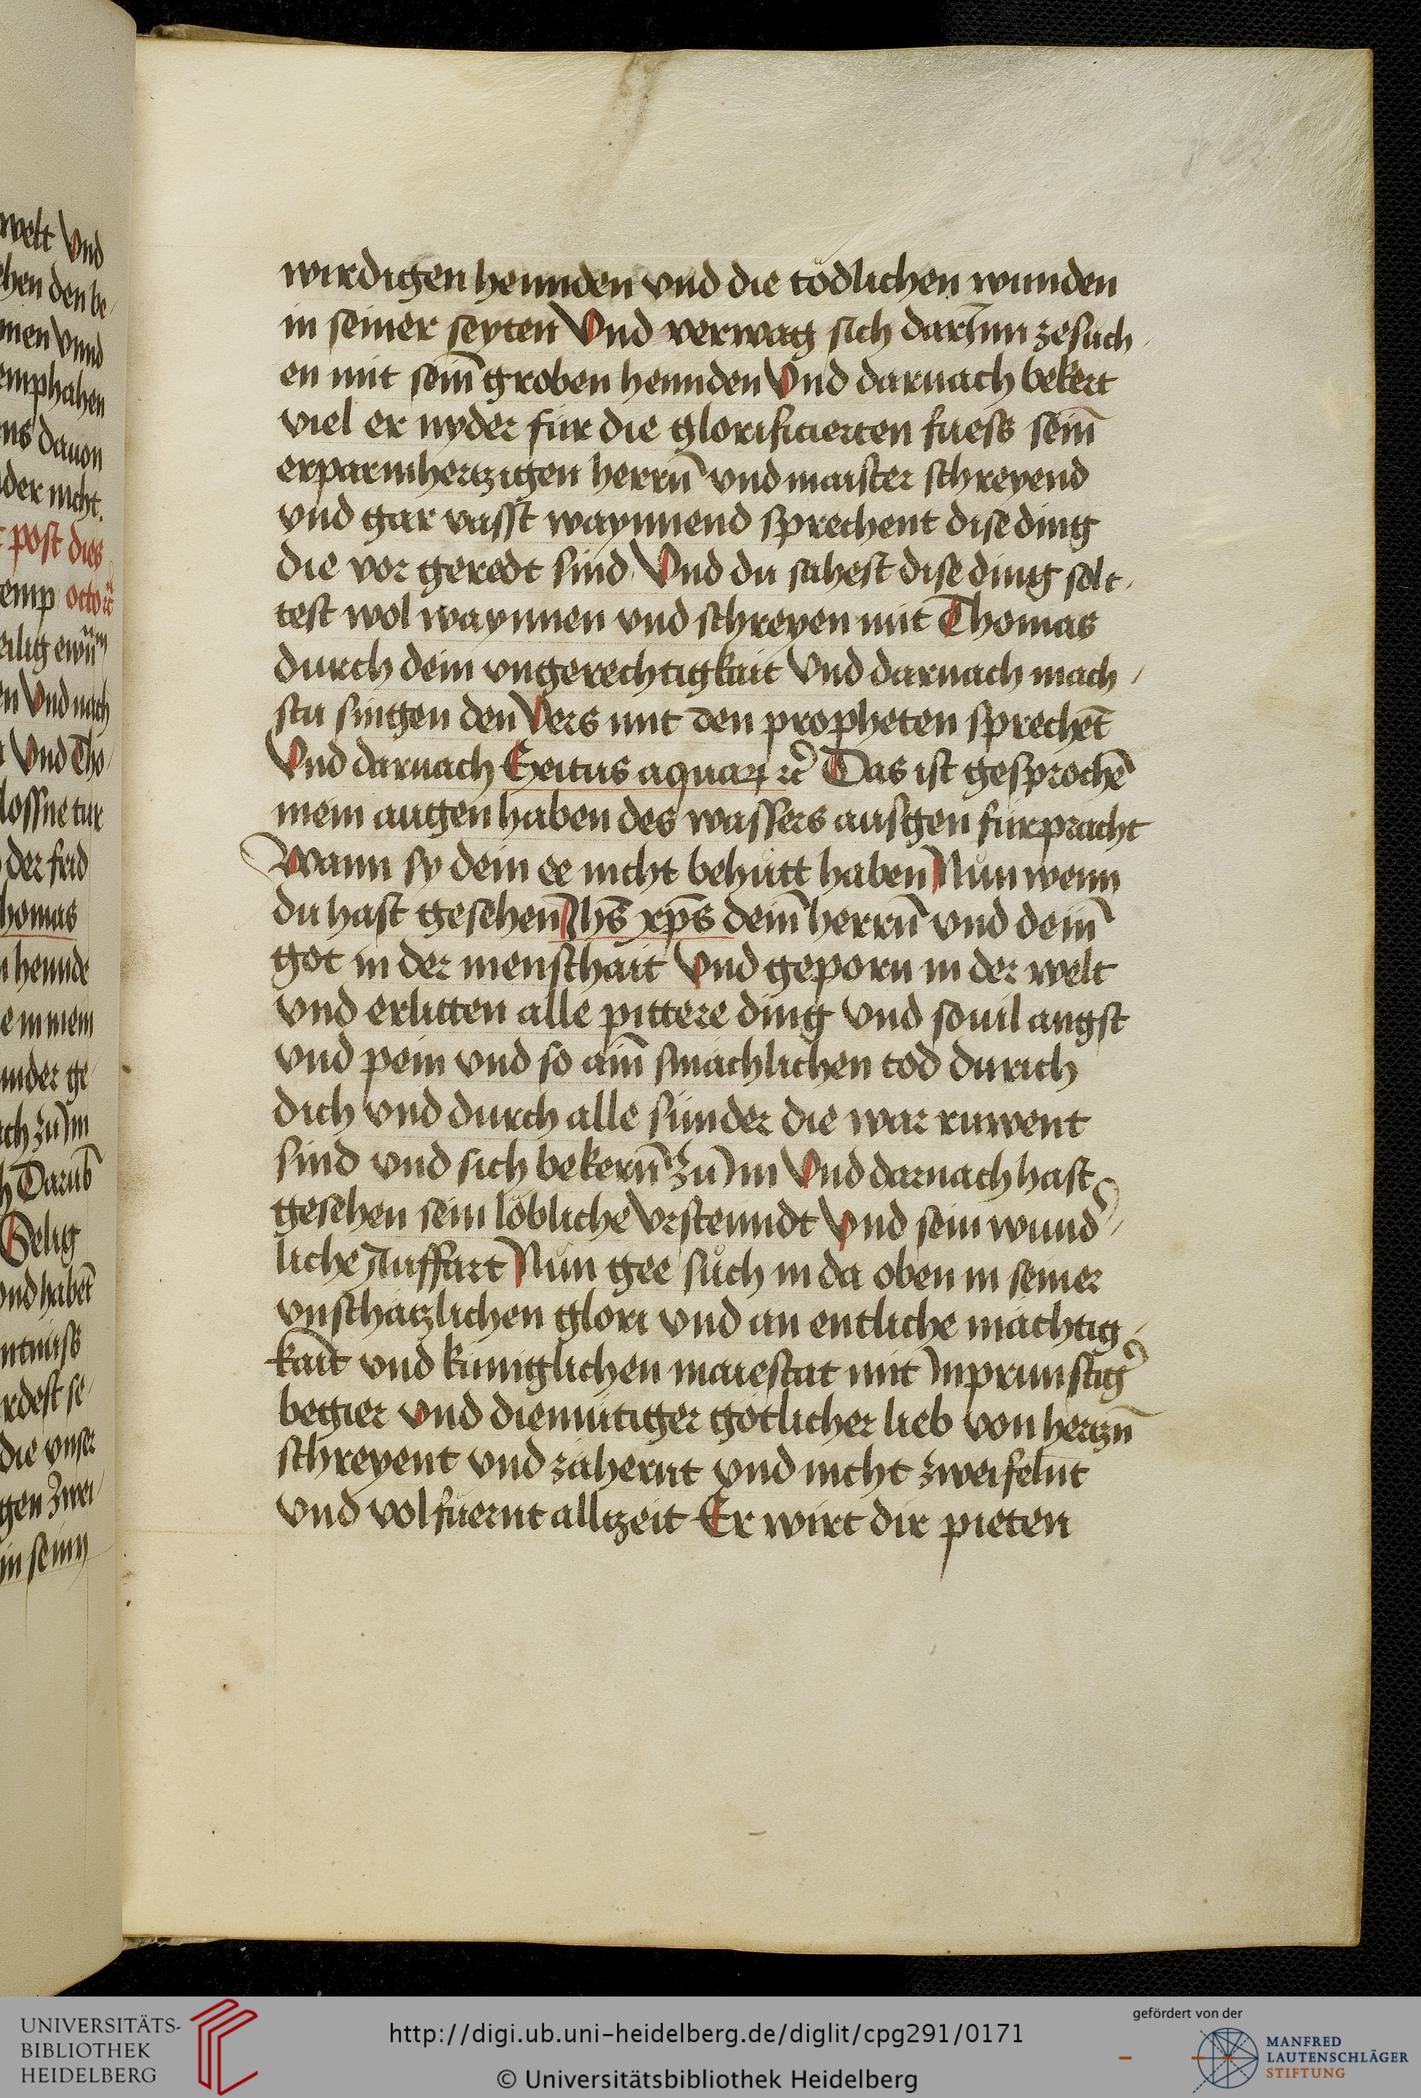 wirdigen hennden vnd die tödlichen wunden
in seiner seyten Vnd verwag sich darinn zesuch
en mit seim̄ groben hennden Vnd darnach bekert
viel er nyder für die glorificierten fuess seim̄
erparmhertzigen herrn̄ vnd maister schreyend
vnd gar vasst waynnend sprechent dise ding
die vor geredt sind Vnd du sahest dise ding solt
test wol waynnen vnd schreyen mit Thomas
durch dein vngerechtigkait Vnd darnach mach
stu singen den Vers mit den propheten sprechēt
Vnd darnach Exitus aquaꝝ ⁊c̄ Das ist gesprochē
mein augen haben des wassers ausgen fürpracht
Wann sy dein ee nicht behůtt haben Nun wenn
du hast gesehen Ihs̄ xp̄s deim̄ herrn̄ vnd deim̄
got in der menschait Vnd geporn in der welt
vnd erlitten alle pittere ding vnd souil angst
vnd pein vnd so aim̄ smächlichen tod durich
dich vnd durch alle sünder die war ruwent
sind vnd sich bekern̄ zu Im Vnd darnach hast
gesehen sein löbliche Vrstenndt Vnd sein wund
liche Auffart Nun gee sůch in da oben in seiner
vnschätzlichen glori vnd an entliche mächtig
kait vnd küniglichen maiestat mit Inprünstig
begier vnd diemütiger gotlicher lieb von hertzn̄
schreyent vnd zähernt vnd nicht zweifelnt
vnd volfüernt alltzeit Er wirt dir pieten
welt Vnd
hen den be
men vnnd
emphahen
ns dauon
der nicht.
post dies
emp octo ⁊c̄
en Vnd nach
Vnd Tho
lossne tür
der frid
homas
hennde
nder ge
ch zu Im
Darūb
Selig
vnd habēt
ntnüss
rdest se
die vnser
gen Zwei
in seiny
UNIVERSITÄTS-
BIBLIOTHEK
HEIDELBERG
http://digi.ub.uni-heidelberg.de/diglit/cpg291/0171
© Universitätsbibliothek Heidelberg
gefördert von der
MANFRED
LAUTENSCHLÄGER
STIFTUNG